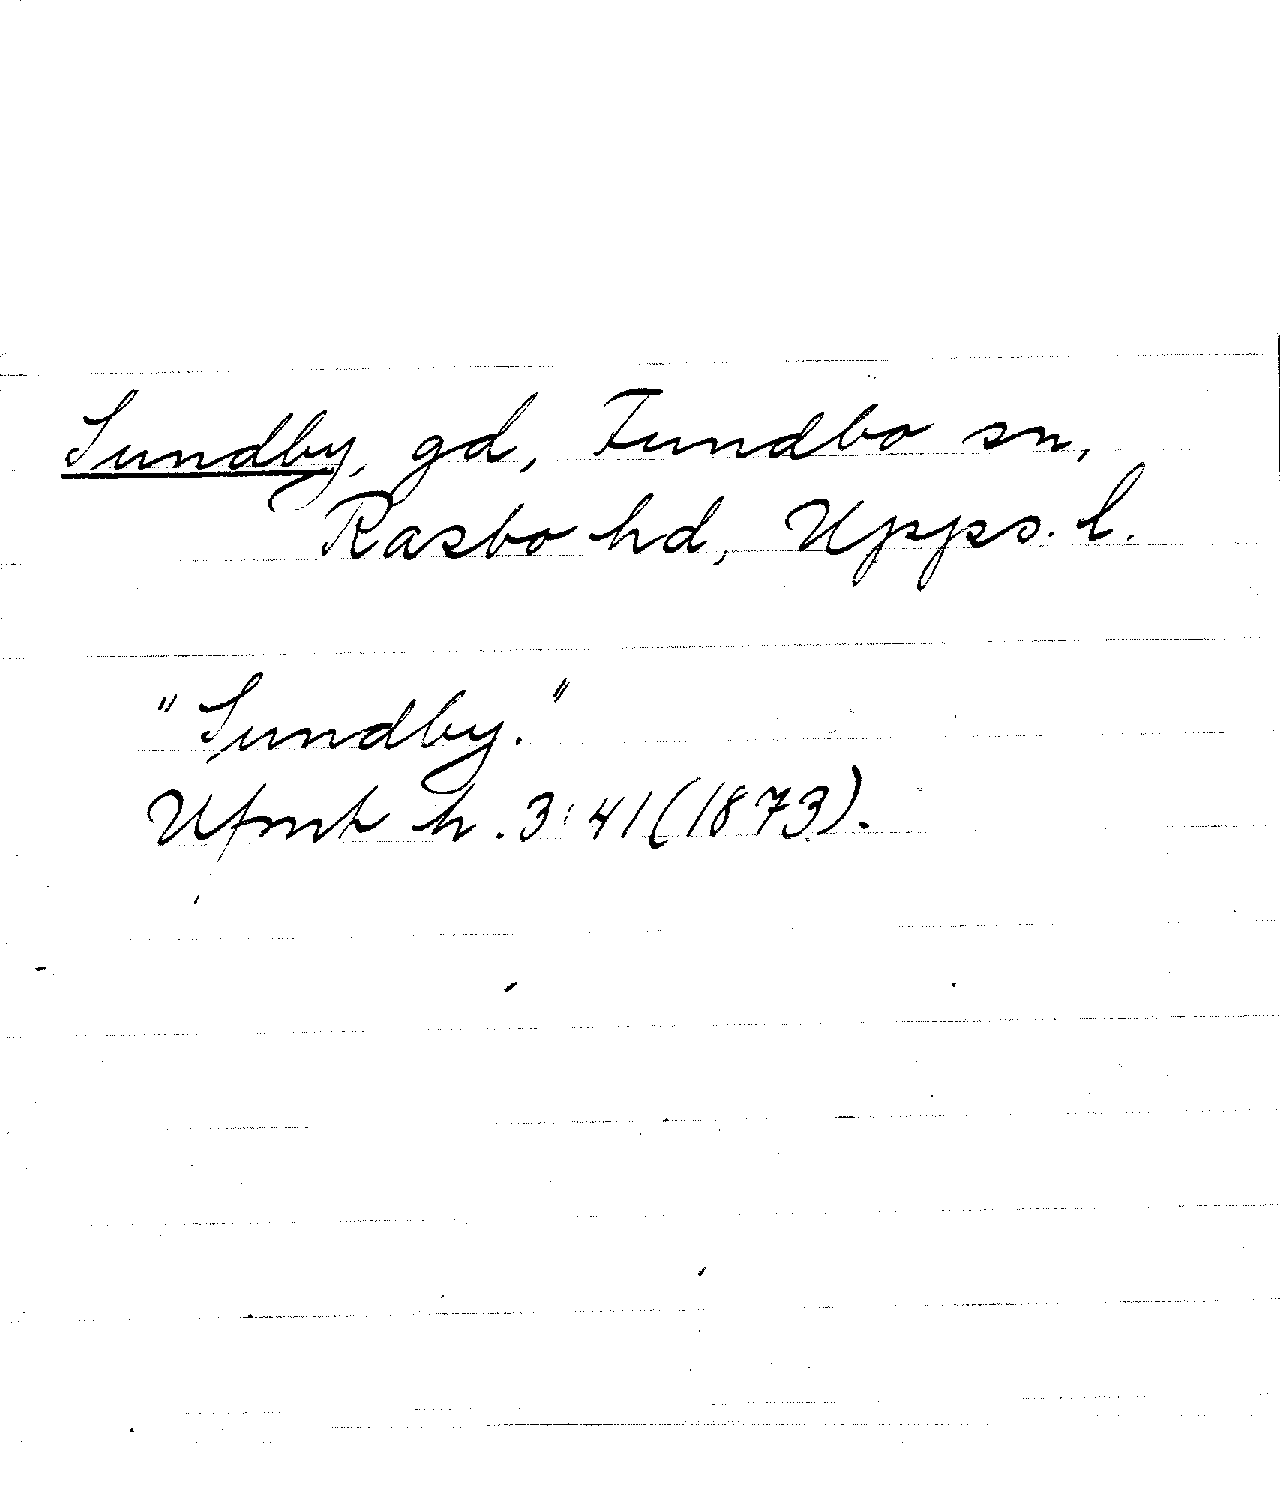 Sundby, gd, Funbo sn,
Rasbo hd, Upps. l.
"Sundby."
Ufmt h. 3:41(1873).